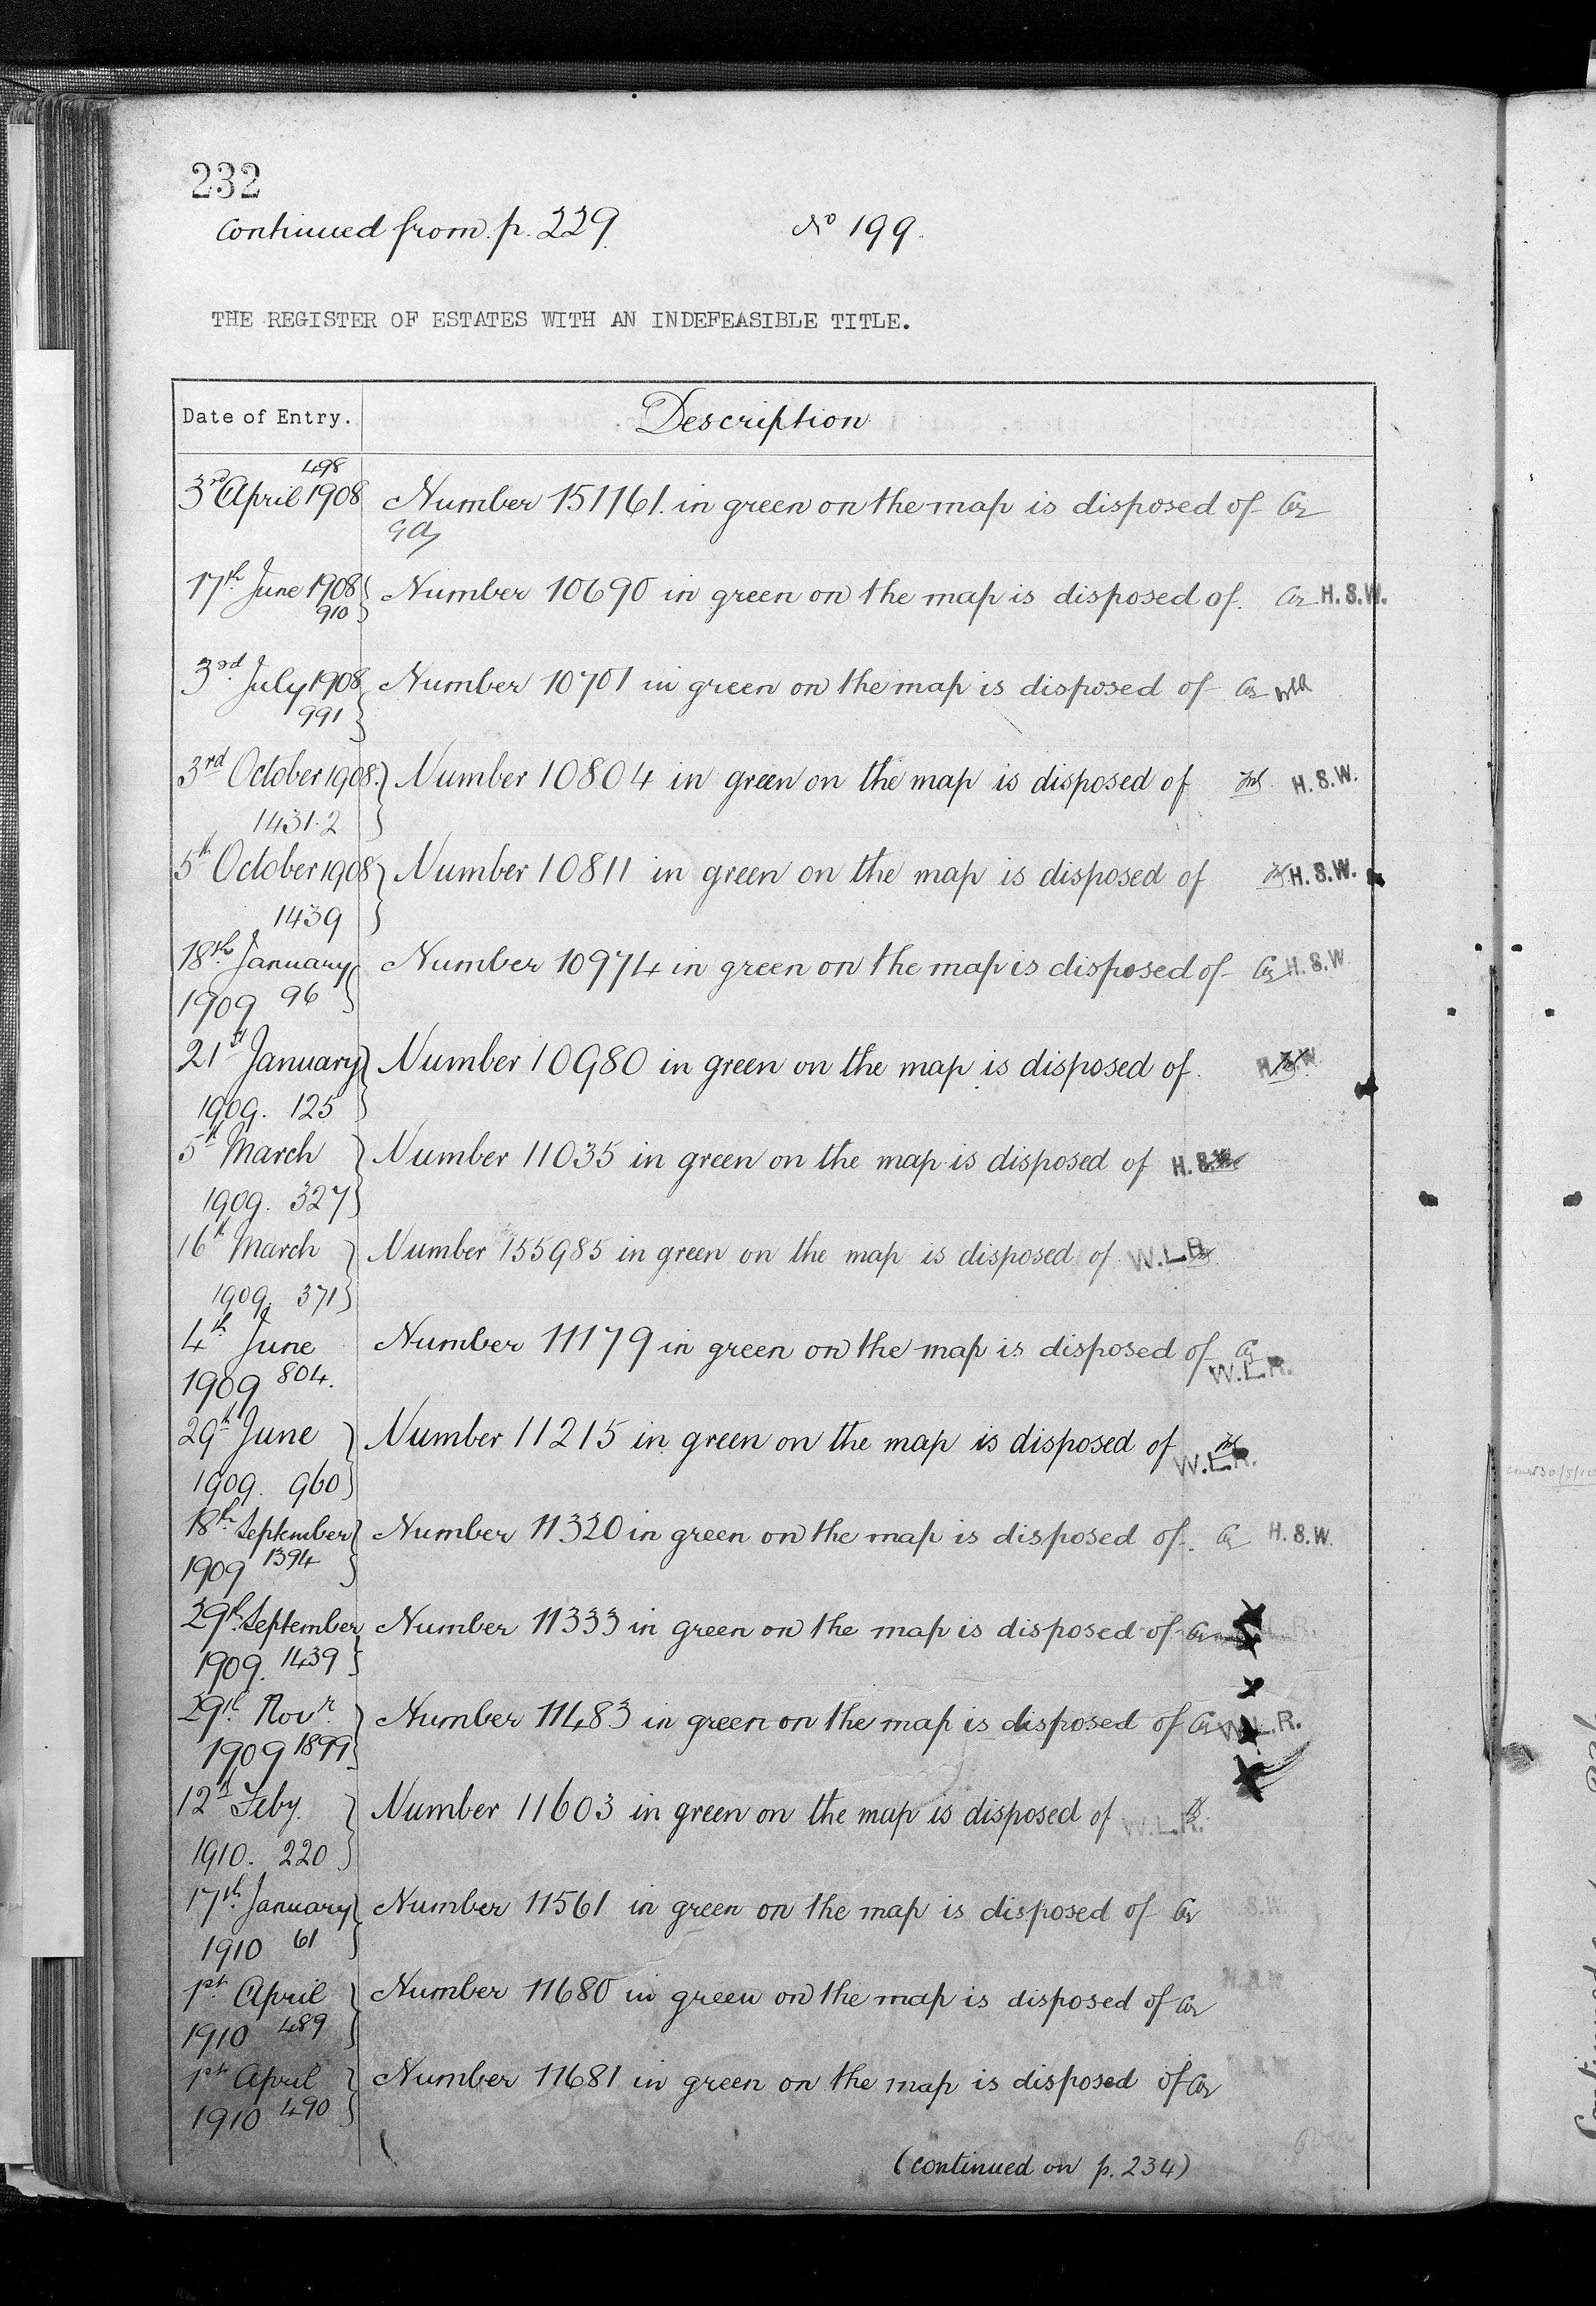 232
Continued from p. 229.
No 199.
THE REGISTER OF ESTATES WITH AN INDEFEASIBLE TITLE.
Date of Entry. Description
498
3rd April 1908 Number 151161. in green on the map is disposed of
17th June 1908 Number 10690 in green on the map is disposed of. H.S.W.
910
3rd July 1908 Number 10701 in green on the map is disposed of
991
3rd October 1908. Number 10804 in green on the map is disposed of H.S.W.
1431.2
5th October 1908 Number 10811 in green on the map is disposed of H.S.W.
1439
18th January Number 10974 in green on the map is disposed of H.S.W.
1909 96
21st January Number 10980 in green on the map is disposed of. H.S.W.
1909. 125
5th March Number 11035 in green on the map is disposed of H.S.
1909. 327
16th March Number 155985 in green on the map is disposed of W.L.R.
1909. 371
4th June Number 11179 in green on the map is disposed of W.L.R.
1909 804.
29th June Number 11215 in green on the map is disposed of W.L.R.
1909. 960
18th September Number 11320 in green on the map is disposed of. H.S.W.
1909 1394
29th September Number 11333 in green on the map is disposed of
1909. 1439
29th Novr. Number 11483 in green on the map is disposed of W.L.R.
1909 1899
12th Feby. Number 11603 in green on the map is disposed of W.L.R.
1910. 220
17th January Number 11561 in green on the map is disposed of H.S.W.
1910 61
1st April Number 11680 in green on the map is disposed of
1910 489
1st April Number 11681 in green on the map is disposed of
1910 490
(continued on p. 234)